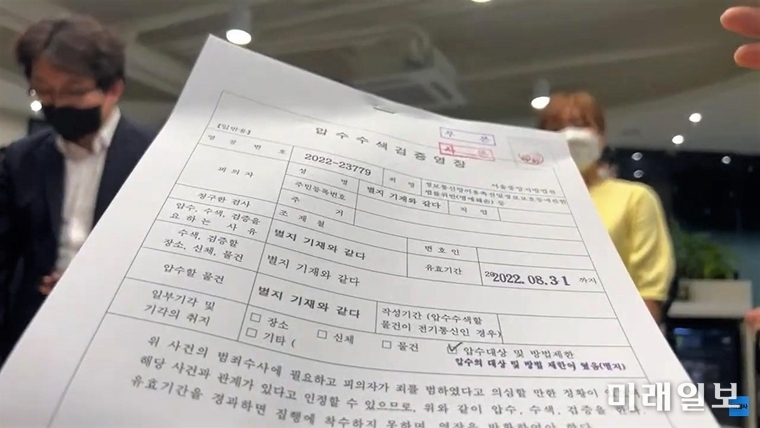 압수수색검증영장
부 본
사 본
[일반용]
서울중앙지방법원
영장번호 2022-23779 죄명 정보통신망이용촉진및정보보호등에관한
법률위반(명예훼손) 등
피의자 성 명 별지 기재와 같다 직 업
주민등록번호
주 거
청구한 검사 조 재 철 변호인
압수, 수색, 검증을
요하는 사유 별지 기재와 같다 유효기간 2022.08.31 까지
수색, 검증할
장소, 신체, 물건 별지 기재와 같다
압수할 물건 별지 기재와 같다 작성기간 (압수수색할
물건이 전기통신인 경우)
일부기각 및
기각의 취지 □ 장소 □ 신체 □ 물건 ☑ 압수대상 및 방법제한
□ 기타 ( 압수의 대상 및 방법 제한이 있음(별지)
위 사건의 범죄수사에 필요하고 피의자가 죄를 범하였다고 의심할 만한 정황이
해당 사건과 관계가 있다고 인정할 수 있으므로, 위와 같이 압수, 수색, 검증을
유효기간을 경과하면 집행에 착수하지 못하며, 영장을 반환하여야 한다.
미래일보